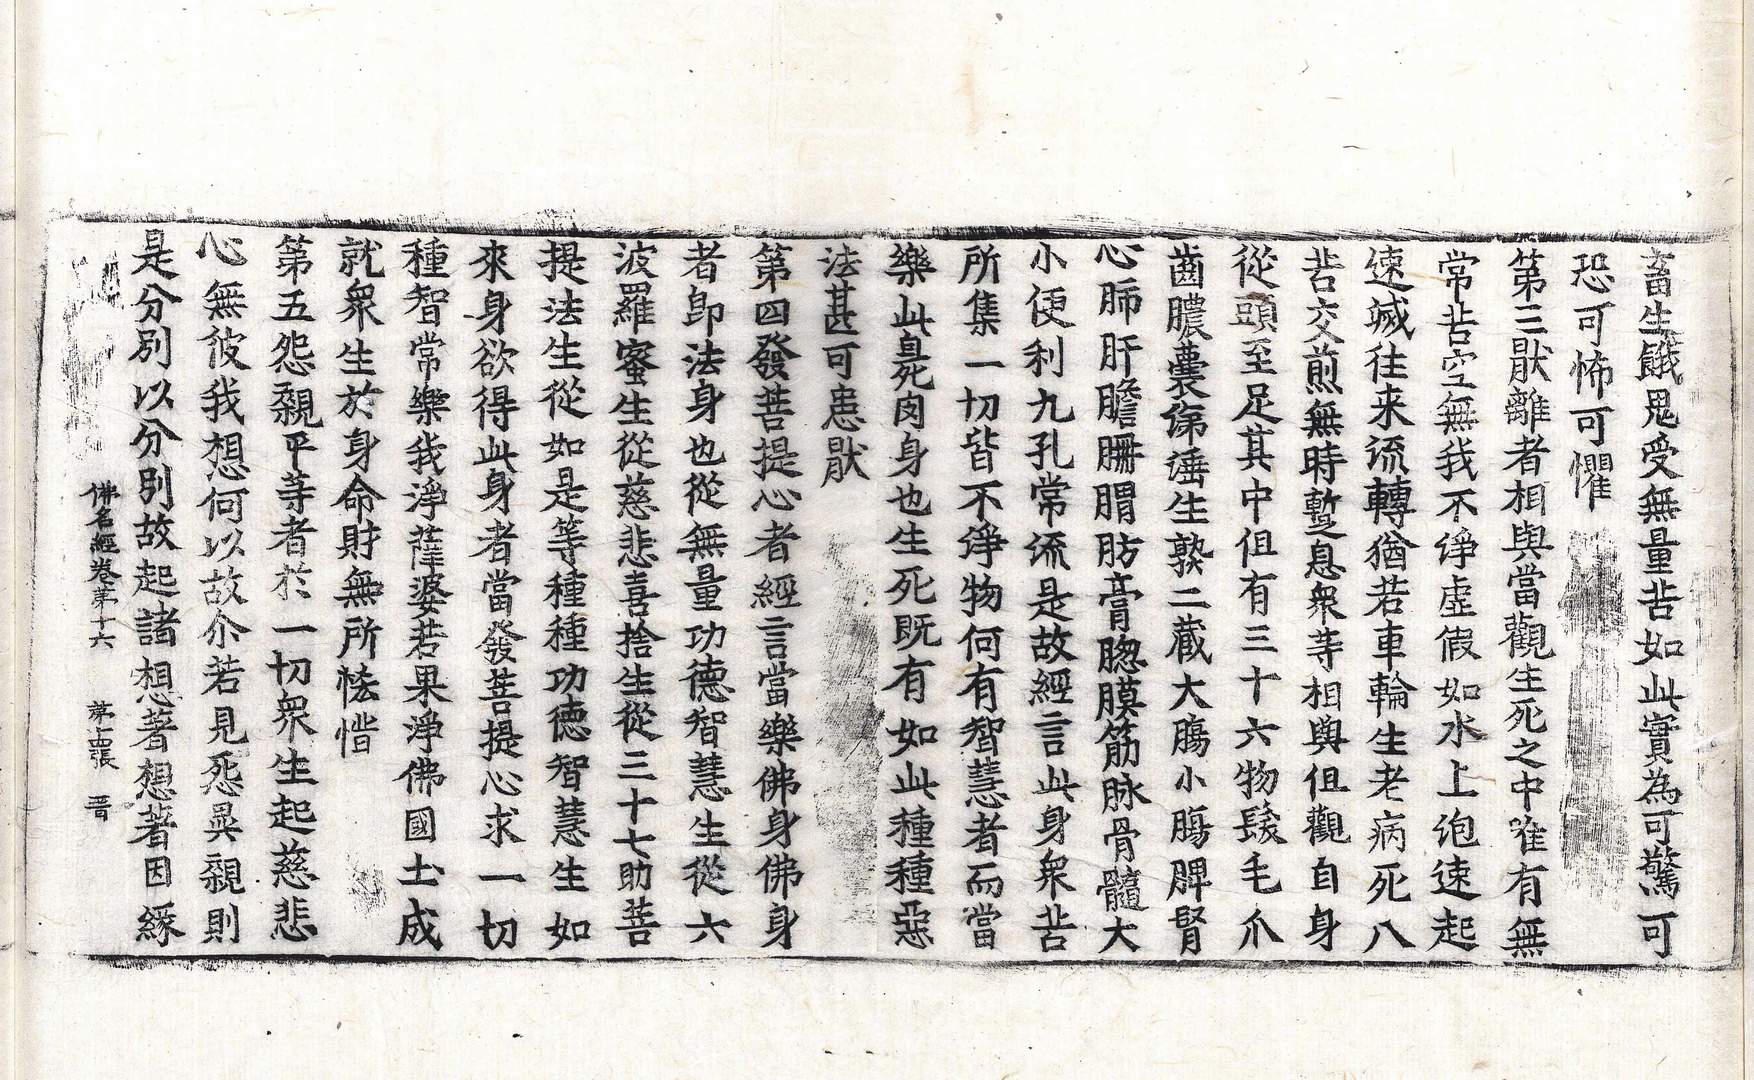 畜生餓鬼受無量苦如此實為可驚可
恐可怖可懼
第三厭離者相與當觀生死之中唯有無
常苦空無我不淨虛假如水上泡速起
速滅往来流轉猶若車輪生老病死八
苦交煎無時蹔息衆等相與但觀自身
從頭至足其中但有三十六物髮毛爪
齒膿囊涕唾生熟二藏大膓小膓脾腎
心肺肝膽𦜽胃肪膏𦡶膜筋脉骨髓大
小便利九孔常流是故經言此身衆苦
所集一切皆不淨物何有智慧者而當
樂此臭死肉身也生死既有如此種種惡
法甚可患猒
第四發菩提心者經言當樂佛身佛身
者即法身也從無量功德智慧生從六
波羅蜜生從慈悲喜捨生從三十七助菩
提法生從如是等種種功德智慧生如
來身欲得此身者當發菩提心求一切
種智常樂我淨薩婆若果淨佛國土成
就衆生於身命財無所恡惜
第五怨親平等者於一切衆生起慈悲
心無彼我想何以故尒若見怨異親則
是分別以分別故起諸想著想著因緣
佛名經卷第十六　第　張　晋